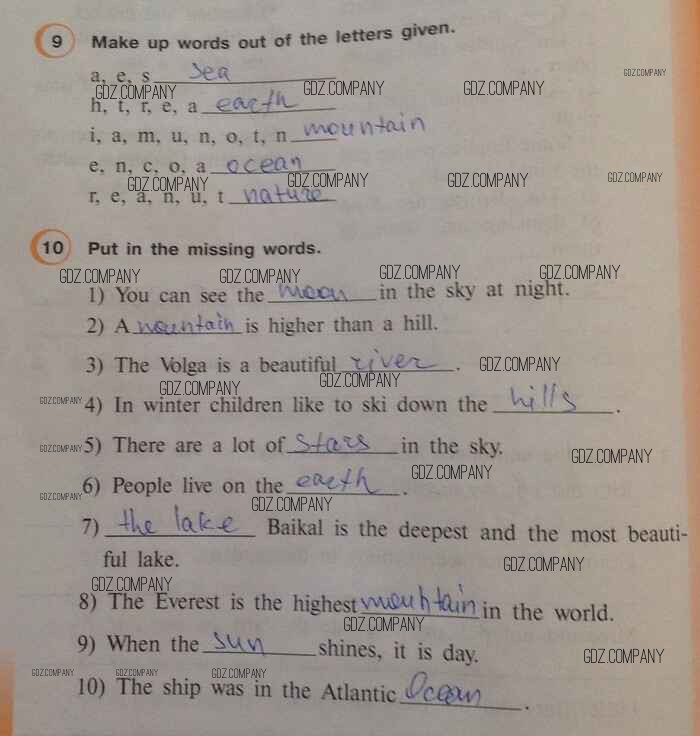 9 Make up words out of the letters given.
a, e, s sea
GDZ.COMPANY GDZ.COMPANY GDZ.COMPANY GDZ.COMPANY
h, t, r, e, a earth
i, a, m, u, n, o, t, n mountain
e, n, c, o, a ocean
GDZ.COMPANY GDZ.COMPANY GDZ.COMPANY GDZ.COMPANY
r, e, a, n, u, t nature
10 Put in the missing words.
GDZ.COMPANY GDZ.COMPANY GDZ.COMPANY GDZ.COMPANY
1) You can see the moon in the sky at night.
2) A mountain is higher than a hill.
3) The Volga is a beautiful river. GDZ.COMPANY
GDZ.COMPANY GDZ.COMPANY
GDZ.COMPANY 4) In winter children like to ski down the hills.
GDZ.COMPANY 5) There are a lot of stars in the sky. GDZ.COMPANY
6) People live on the earth. GDZ.COMPANY
GDZ.COMPANY GDZ.COMPANY
7) the lake Baikal is the deepest and the most beauti-
ful lake. GDZ.COMPANY
GDZ.COMPANY
8) The Everest is the highest mountain in the world.
GDZ.COMPANY
9) When the sun shines, it is day. GDZ.COMPANY
GDZ.COMPANY GDZ.COMPANY GDZ.COMPANY
10) The ship was in the Atlantic Ocean.